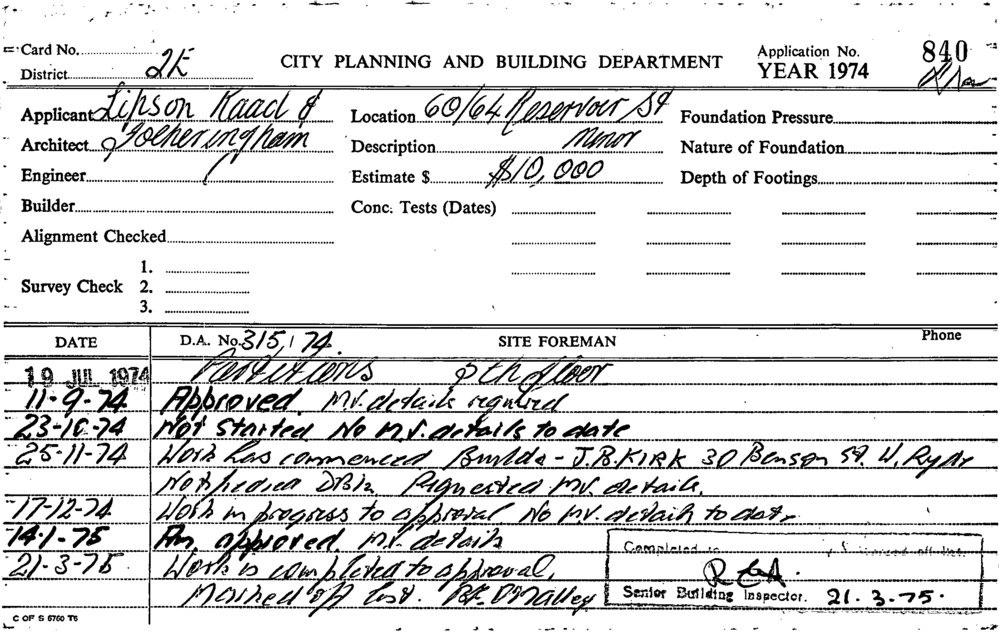 Card No.
District 2E
CITY PLANNING AND BUILDING DEPARTMENT
Application No. 840
YEAR 1974
Applicant Lipson Kaad &
Architect Fotheringham
Engineer
Builder
Alignment Checked
Survey Check 1.
2.
3.
Location 60/64 Reservoir St
Description Minor
Estimate $ $10,000
Conc. Tests (Dates)
Foundation Pressure
Nature of Foundation
Depth of Footings
DATE D.A. No. 315/74. SITE FOREMAN Phone
19 JUL 1974 Partitions 8th floor
11-9-74 Approved. M.V. details required
23-10-74 Not Started No M.V. details to date
25-11-74 Work has commenced Builder - J.B. KIRK 30 Benson St. W. Ryde
Requested M.V. details.
17-12-74 Work in progress to approval No M.V. details to date
14-1-75 As approved. M.V. details
21-3-75 Work is completed to approval.
Marked off list. B.F. O'Malley
Completed to
Senior Building Inspector. 21.3.75.
C OF S 5760 T6